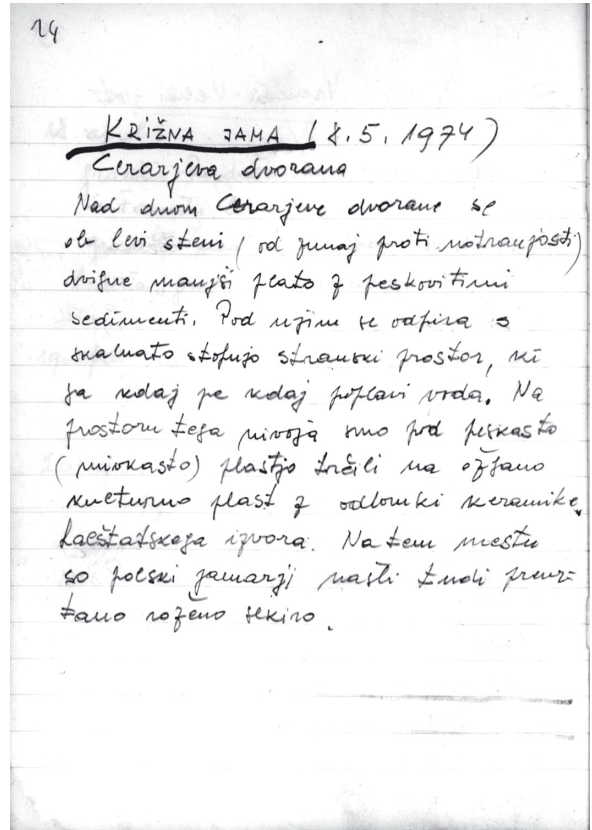 24
KRIŽNA JAMA (8.5.1974)
Cerarjeva dvorana
Nad dnom Cerarjeve dvorane se
ob levi steni (od zunaj proti notranjosti)
dvigne manjši plato z peskovitimi
sedimenti. Pod njim se odpira s
skalnato stopnjo stranski prostor, ki
ga kdaj pa kdaj poplavi voda. Na
prostoru tega nivoja smo pod peskasto
(mivkasto) plastjo trčili na ožgano
kulturno plast z odlomki keramike
halštatskega izvora. Na tem mestu
so polski jamarji našli tudi
roženo sekiro.